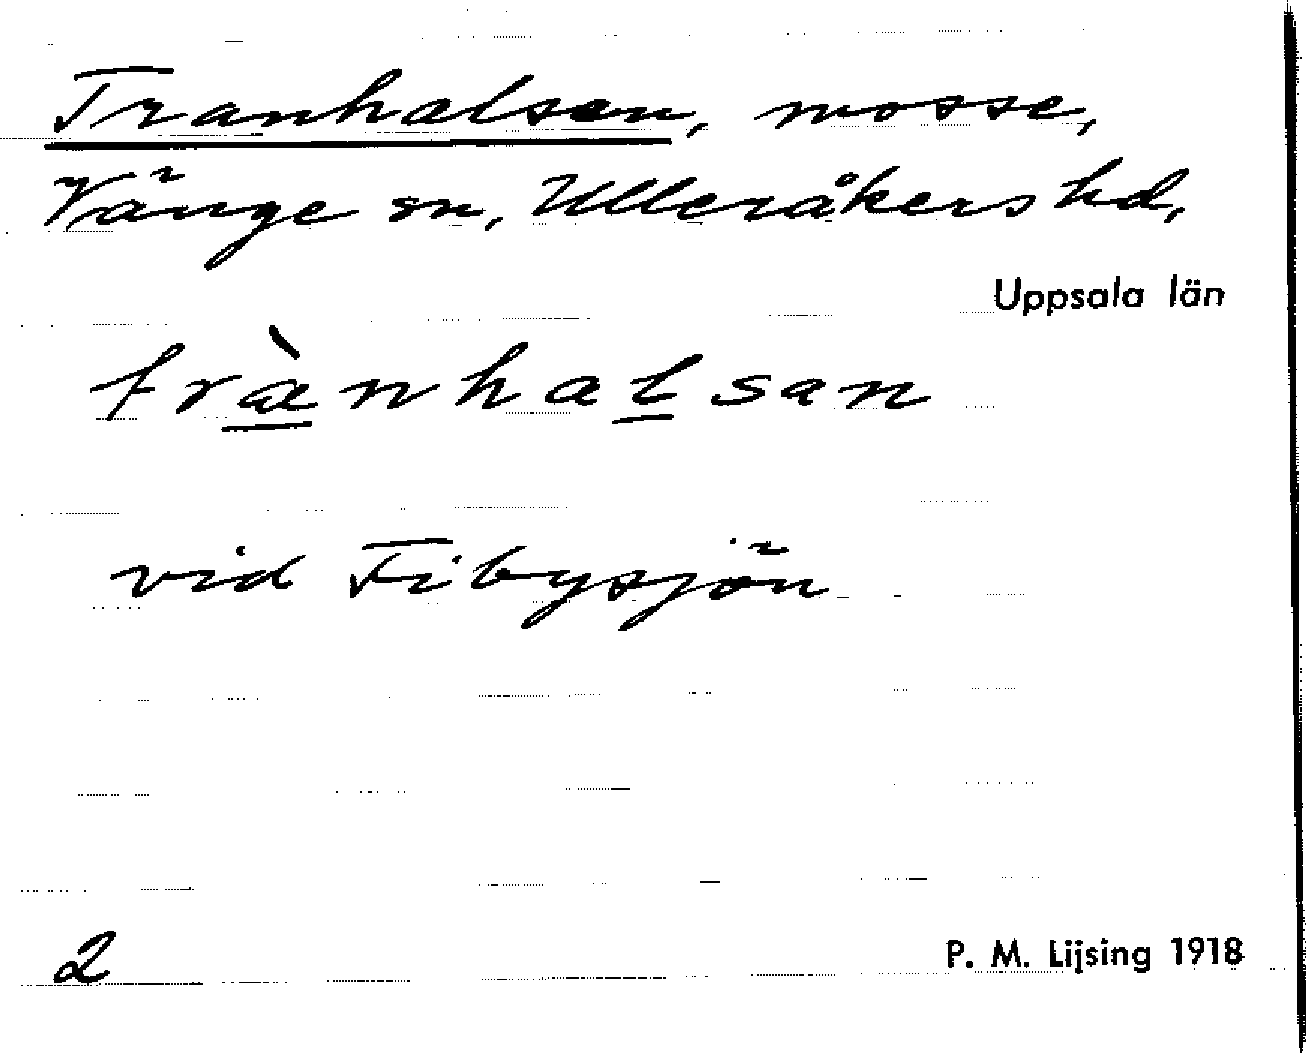 Tranhalsen, mosse,
Vänge sn, Ulleråkers hd,
Uppsala län
trànhalsan
vid Fibysjön
2
P. M. Lijsing 1918